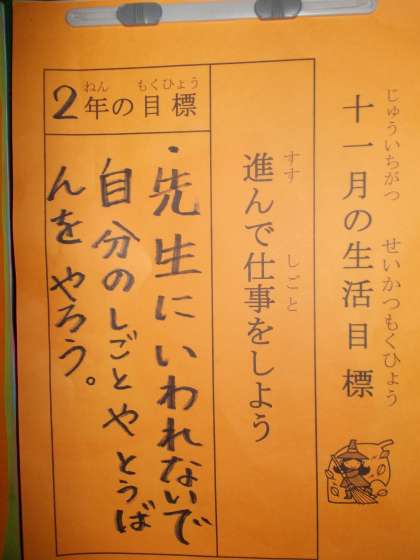 じゅういちがつ せいかつもくひょう
十一月の生活目標
すす しごと
進んで仕事をしよう
ねん もくひょう
2年の目標
・先生にいわれないで
自分のしごとやとうば
んをやろう。